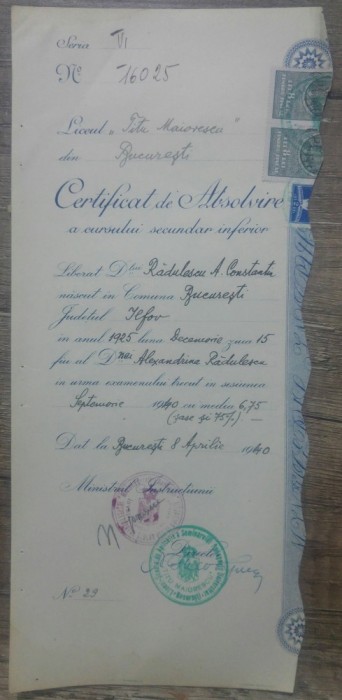 Seria VI
No. 16025
Liceul „Titu Maiorescu"
din București
Certificat de Absolvire
a cursului secundar inferior
Liberat D-lui Rădulescu A. Constantin
născut în Comuna București
Județul Ilfov
în anul 1925 luna Decemvrie ziua 15
fiu al D-nei Alexandrina Rădulescu
în urma examenului trecut în sesiunea
Septemvrie 1940 cu media 6,75
(șase și 75%) —
Dat la București 8 Aprilie 1940
Ministrul Instrucțiunii
No. 29